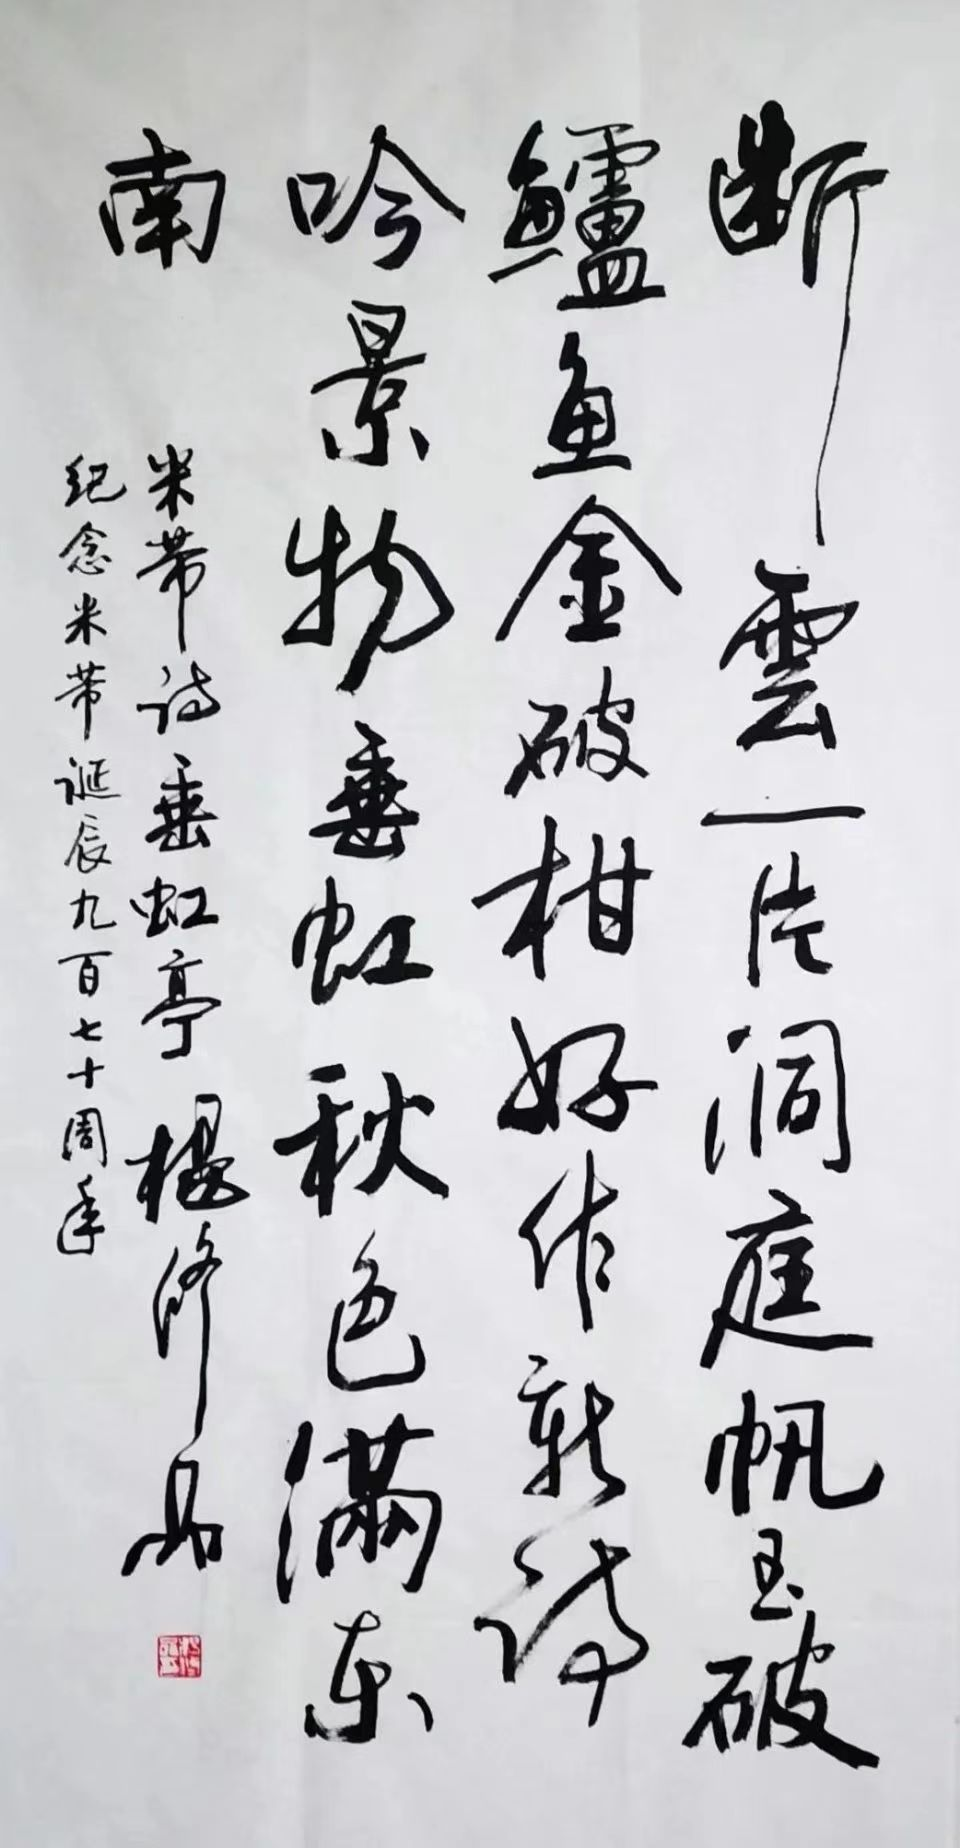 断雲一片洞庭帆玉破
鱸鱼金破柑好作新诗
吟景物垂虹秋色满东
南
米芾诗垂虹亭楊修品
纪念米芾诞辰九百七十周年